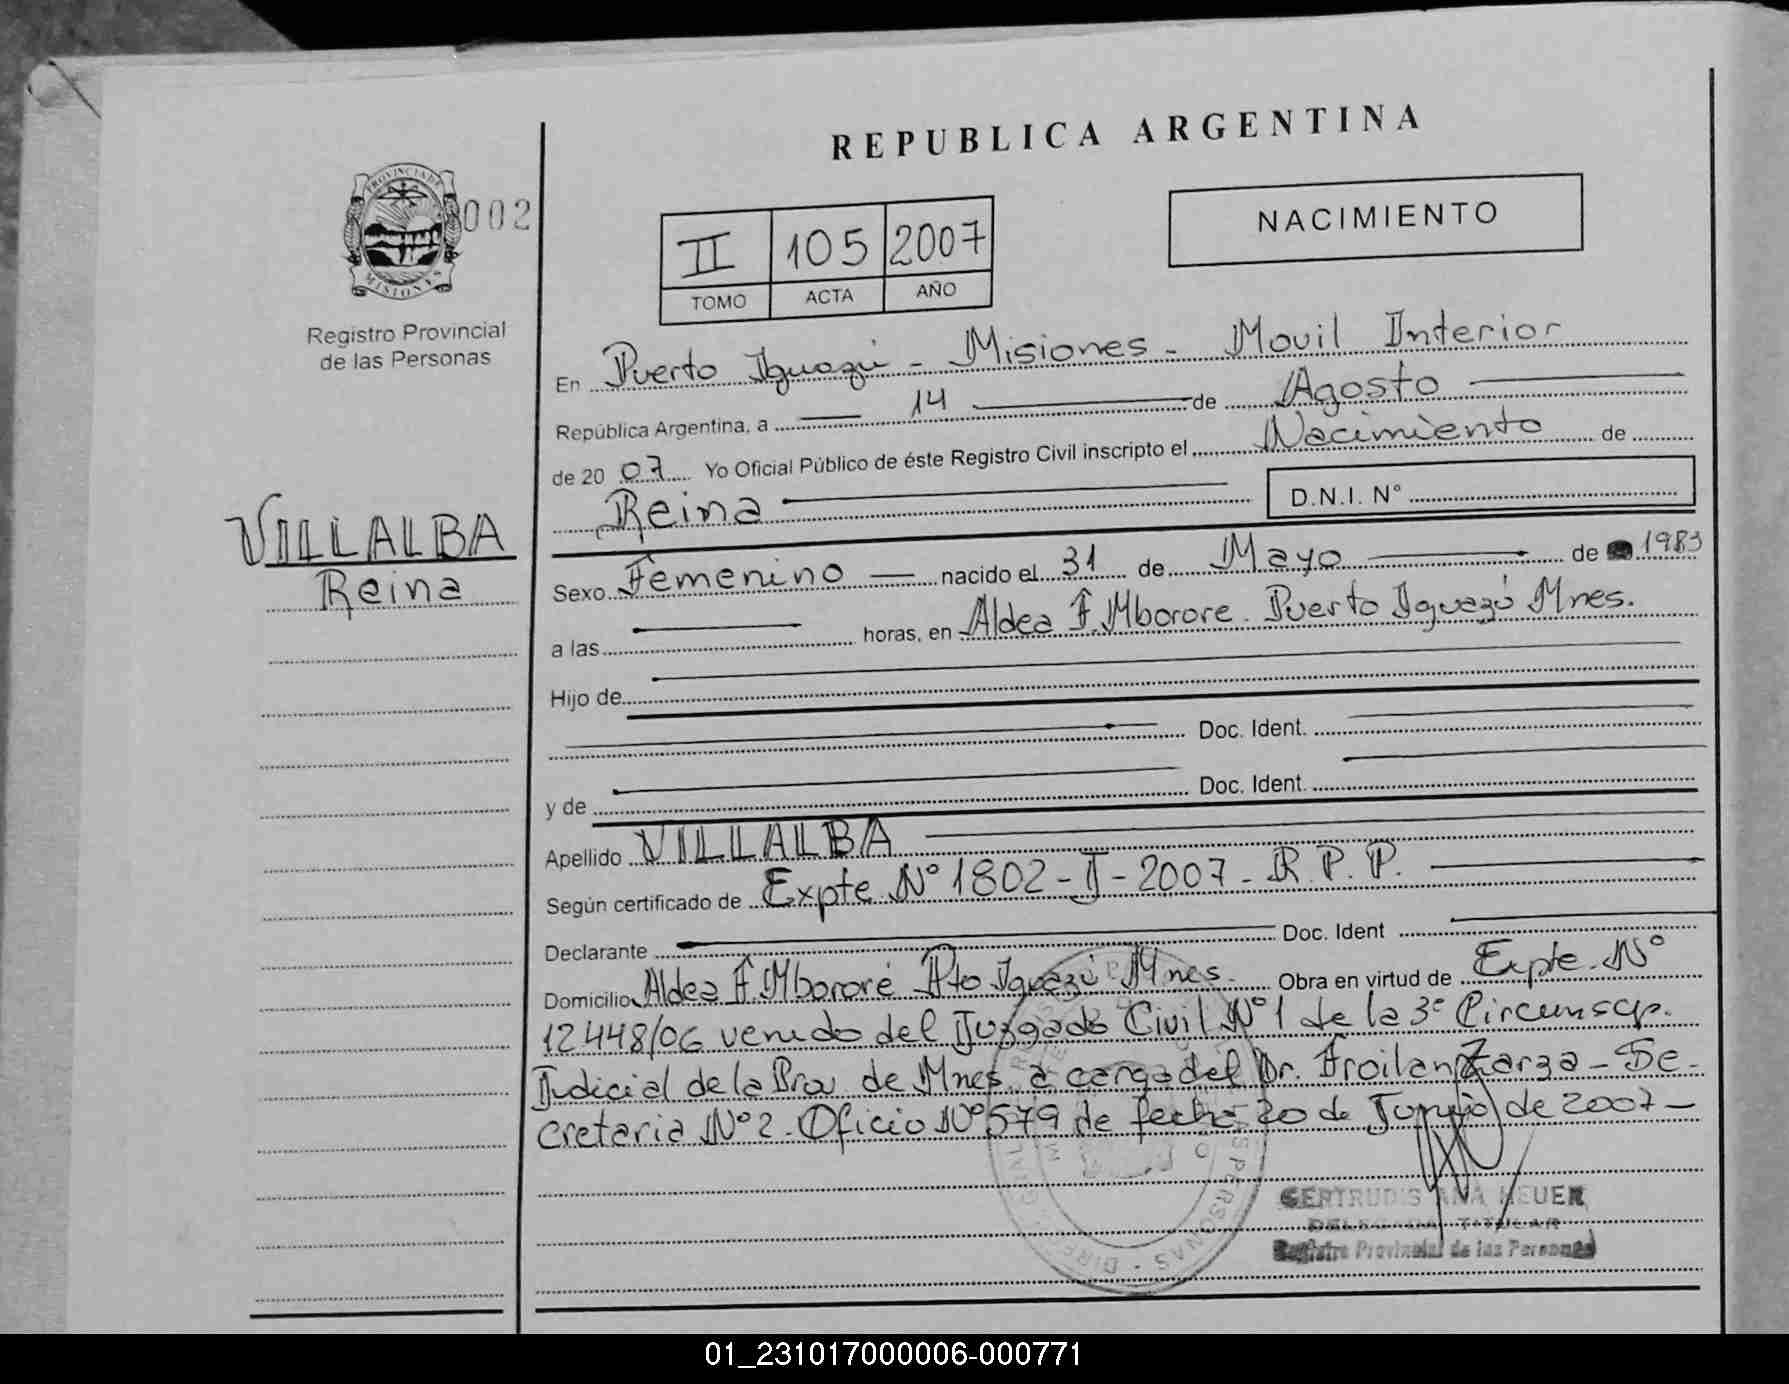 REPUBLICA ARGENTINA
PROVINCIA DE
MISIONES
002
Registro Provincial
de las Personas
II 105 2007
TOMO ACTA AÑO
NACIMIENTO
En Puerto Iguazú - Misiones - Movil Interior
República Argentina, a 14 de Agosto
de 20 07 Yo Oficial Público de éste Registro Civil inscripto el Nacimiento de
Reina D.N.I. N°
VILLALBA
Reina
Sexo Femenino nacido el 31 de Mayo de 1983
a las horas, en Aldea F. Mborore. Puerto Iguazú Mnes.
Hijo de
Doc. Ident.
y de Doc. Ident.
Apellido VILLALBA
Según certificado de Expte. N° 1802-I-2007-R.P.P.
Declarante Doc. Ident
Domicilio Aldea F. Mbororé Pto Iguazú Mnes. Obra en virtud de Expte. N°
12448/06 venido del Juzgado Civil N°1 de la 3° Circunscp.
Judicial de la Prov. de Mnes. a cargo del Dr. Froilan Zarza - Se-
cretaria N°2. Oficio N°579 de fecha 20 de Junio de 2007-
GERTRUDIS ANA HEUER
DELEGADA TITULAR
Registro Provincial de las Personas
01_231017000006-000771